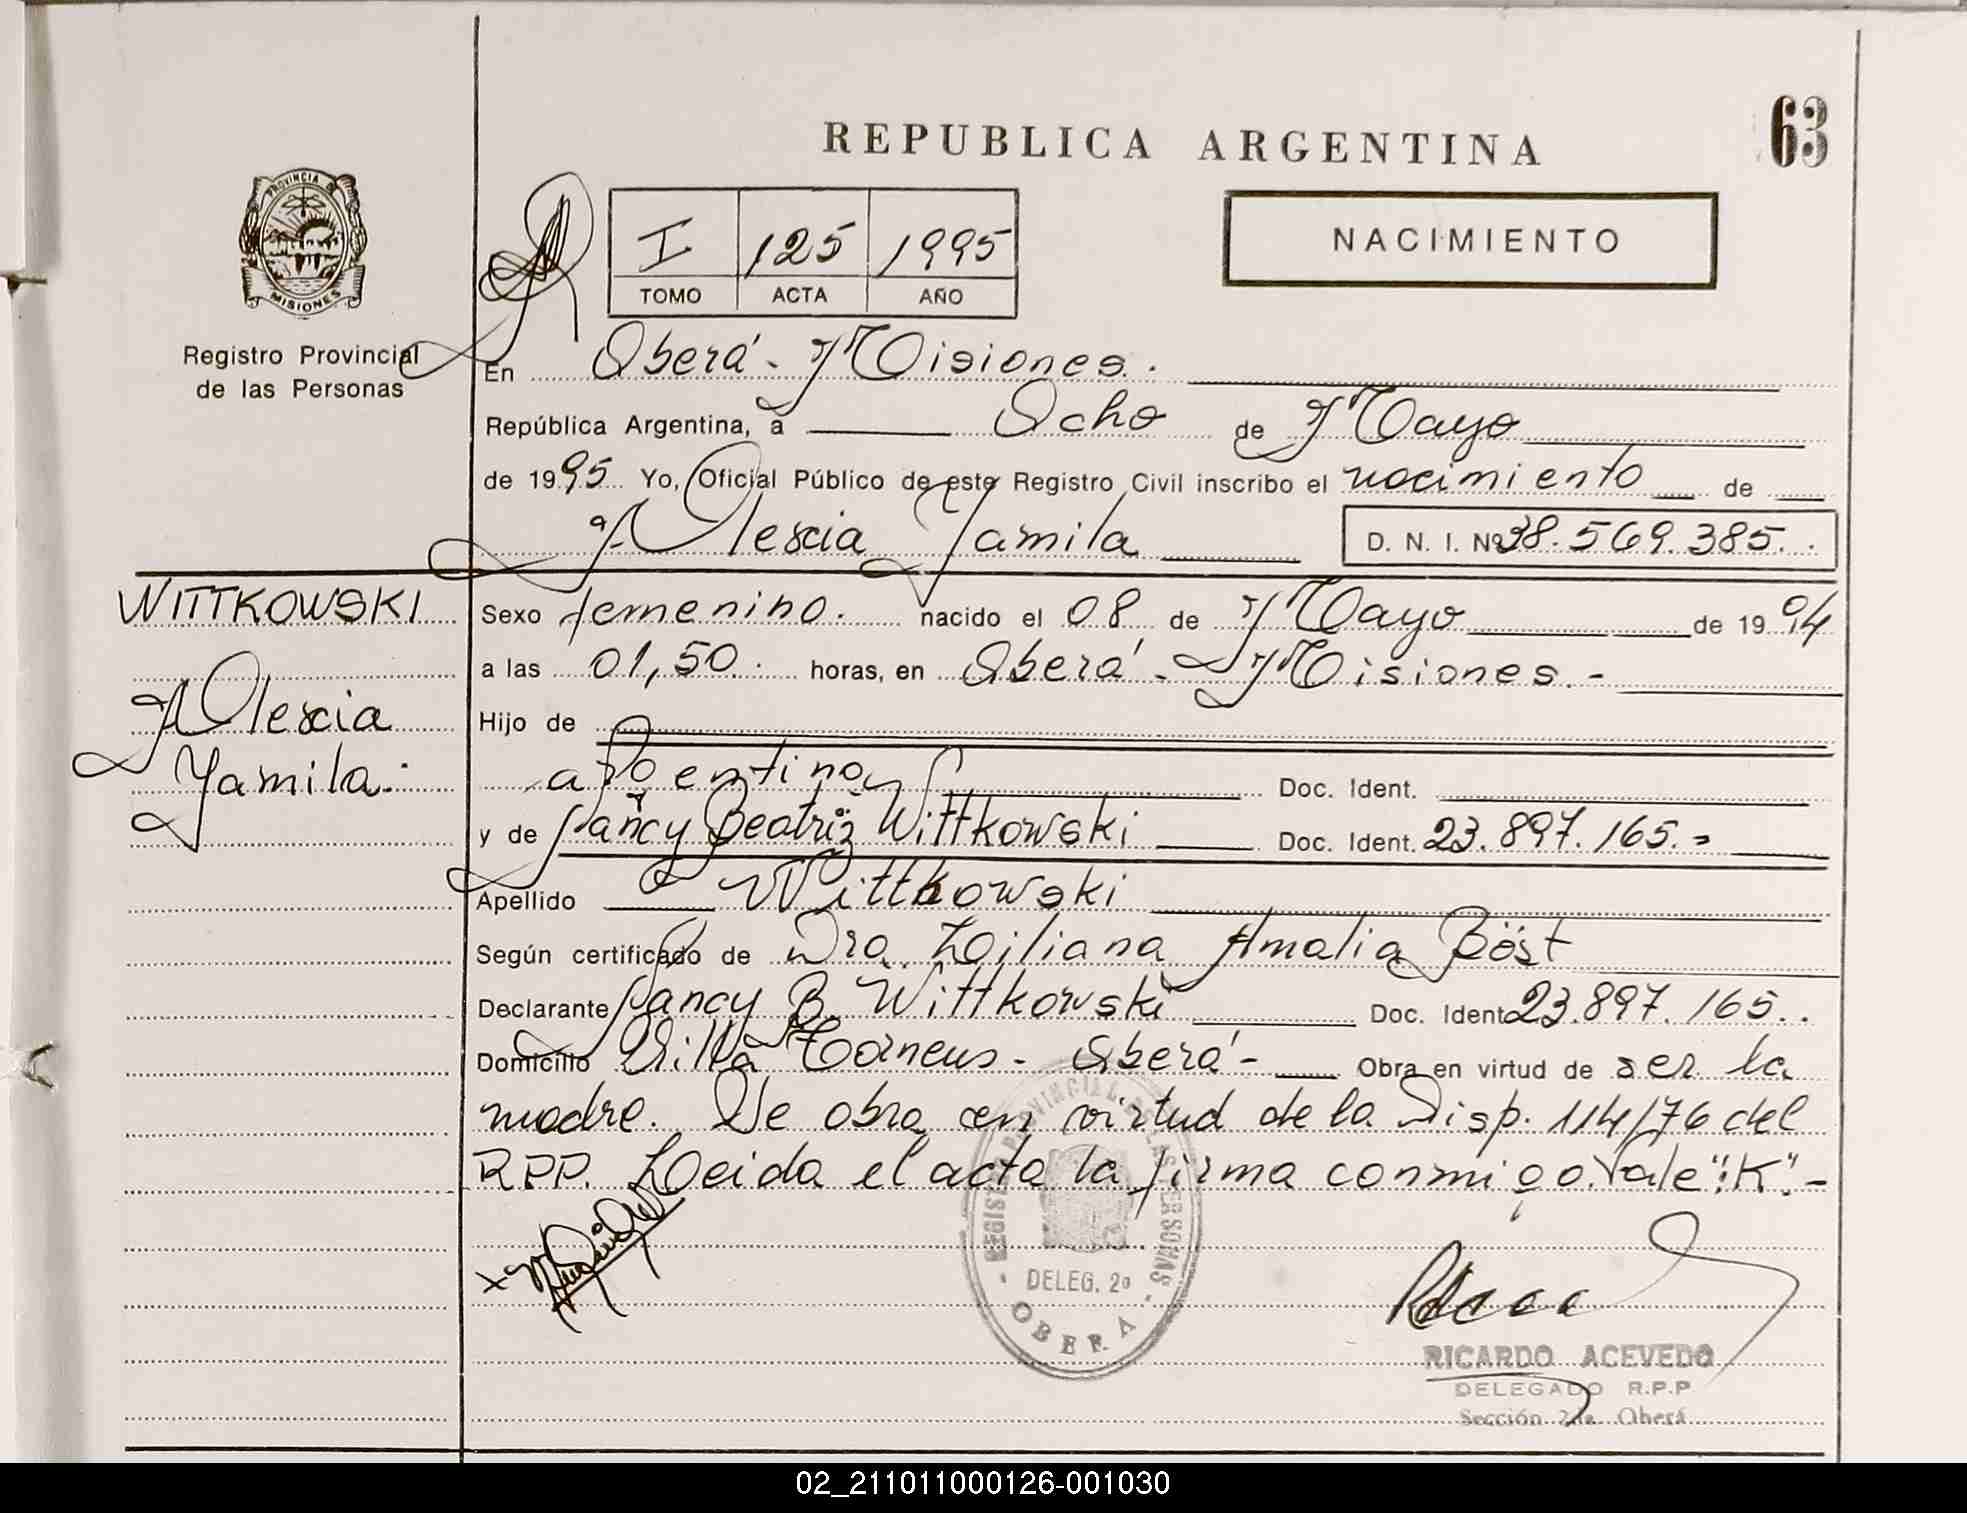 REPUBLICA ARGENTINA
63
PROVINCIA DE
MISIONES
Registro Provincial
de las Personas
I 125 1995
TOMO ACTA AÑO
NACIMIENTO
En Oberá - Misiones.
República Argentina, a Ocho de Mayo
de 1995 Yo, Oficial Público de este Registro Civil inscribo el nacimiento de
Alexia Yamila D. N. I. Nº 38.569.385..
WITTKOWSKI
Alexia
Yamila.-
Sexo femenino. nacido el 08 de Mayo de 1994
a las 01,50. horas, en Oberá - Misiones.-
Hijo de
argentina Doc. Ident.
y de Nancy Beatriz Wittkowski Doc. Ident. 23.897.165.-
Apellido Wittkowski
Según certificado de Dra. Liliana Amalia Böst
Declarante Nancy B. Wittkowski Doc. Ident. 23.897.165..
Domicilio Villa Torneus - Oberá - Obra en virtud de ser la
madre. Se obra en virtud de la Disp. 114/76 del
RPP. Leida el acta la firma conmigo. Vale": K".-
REGISTRO PROVINCIAL DE LAS PERSONAS
DELEG. 2º
OBERA
RICARDO ACEVEDO
DELEGADO R.P.P
Sección 2da. Oberá
02_211011000126-001030